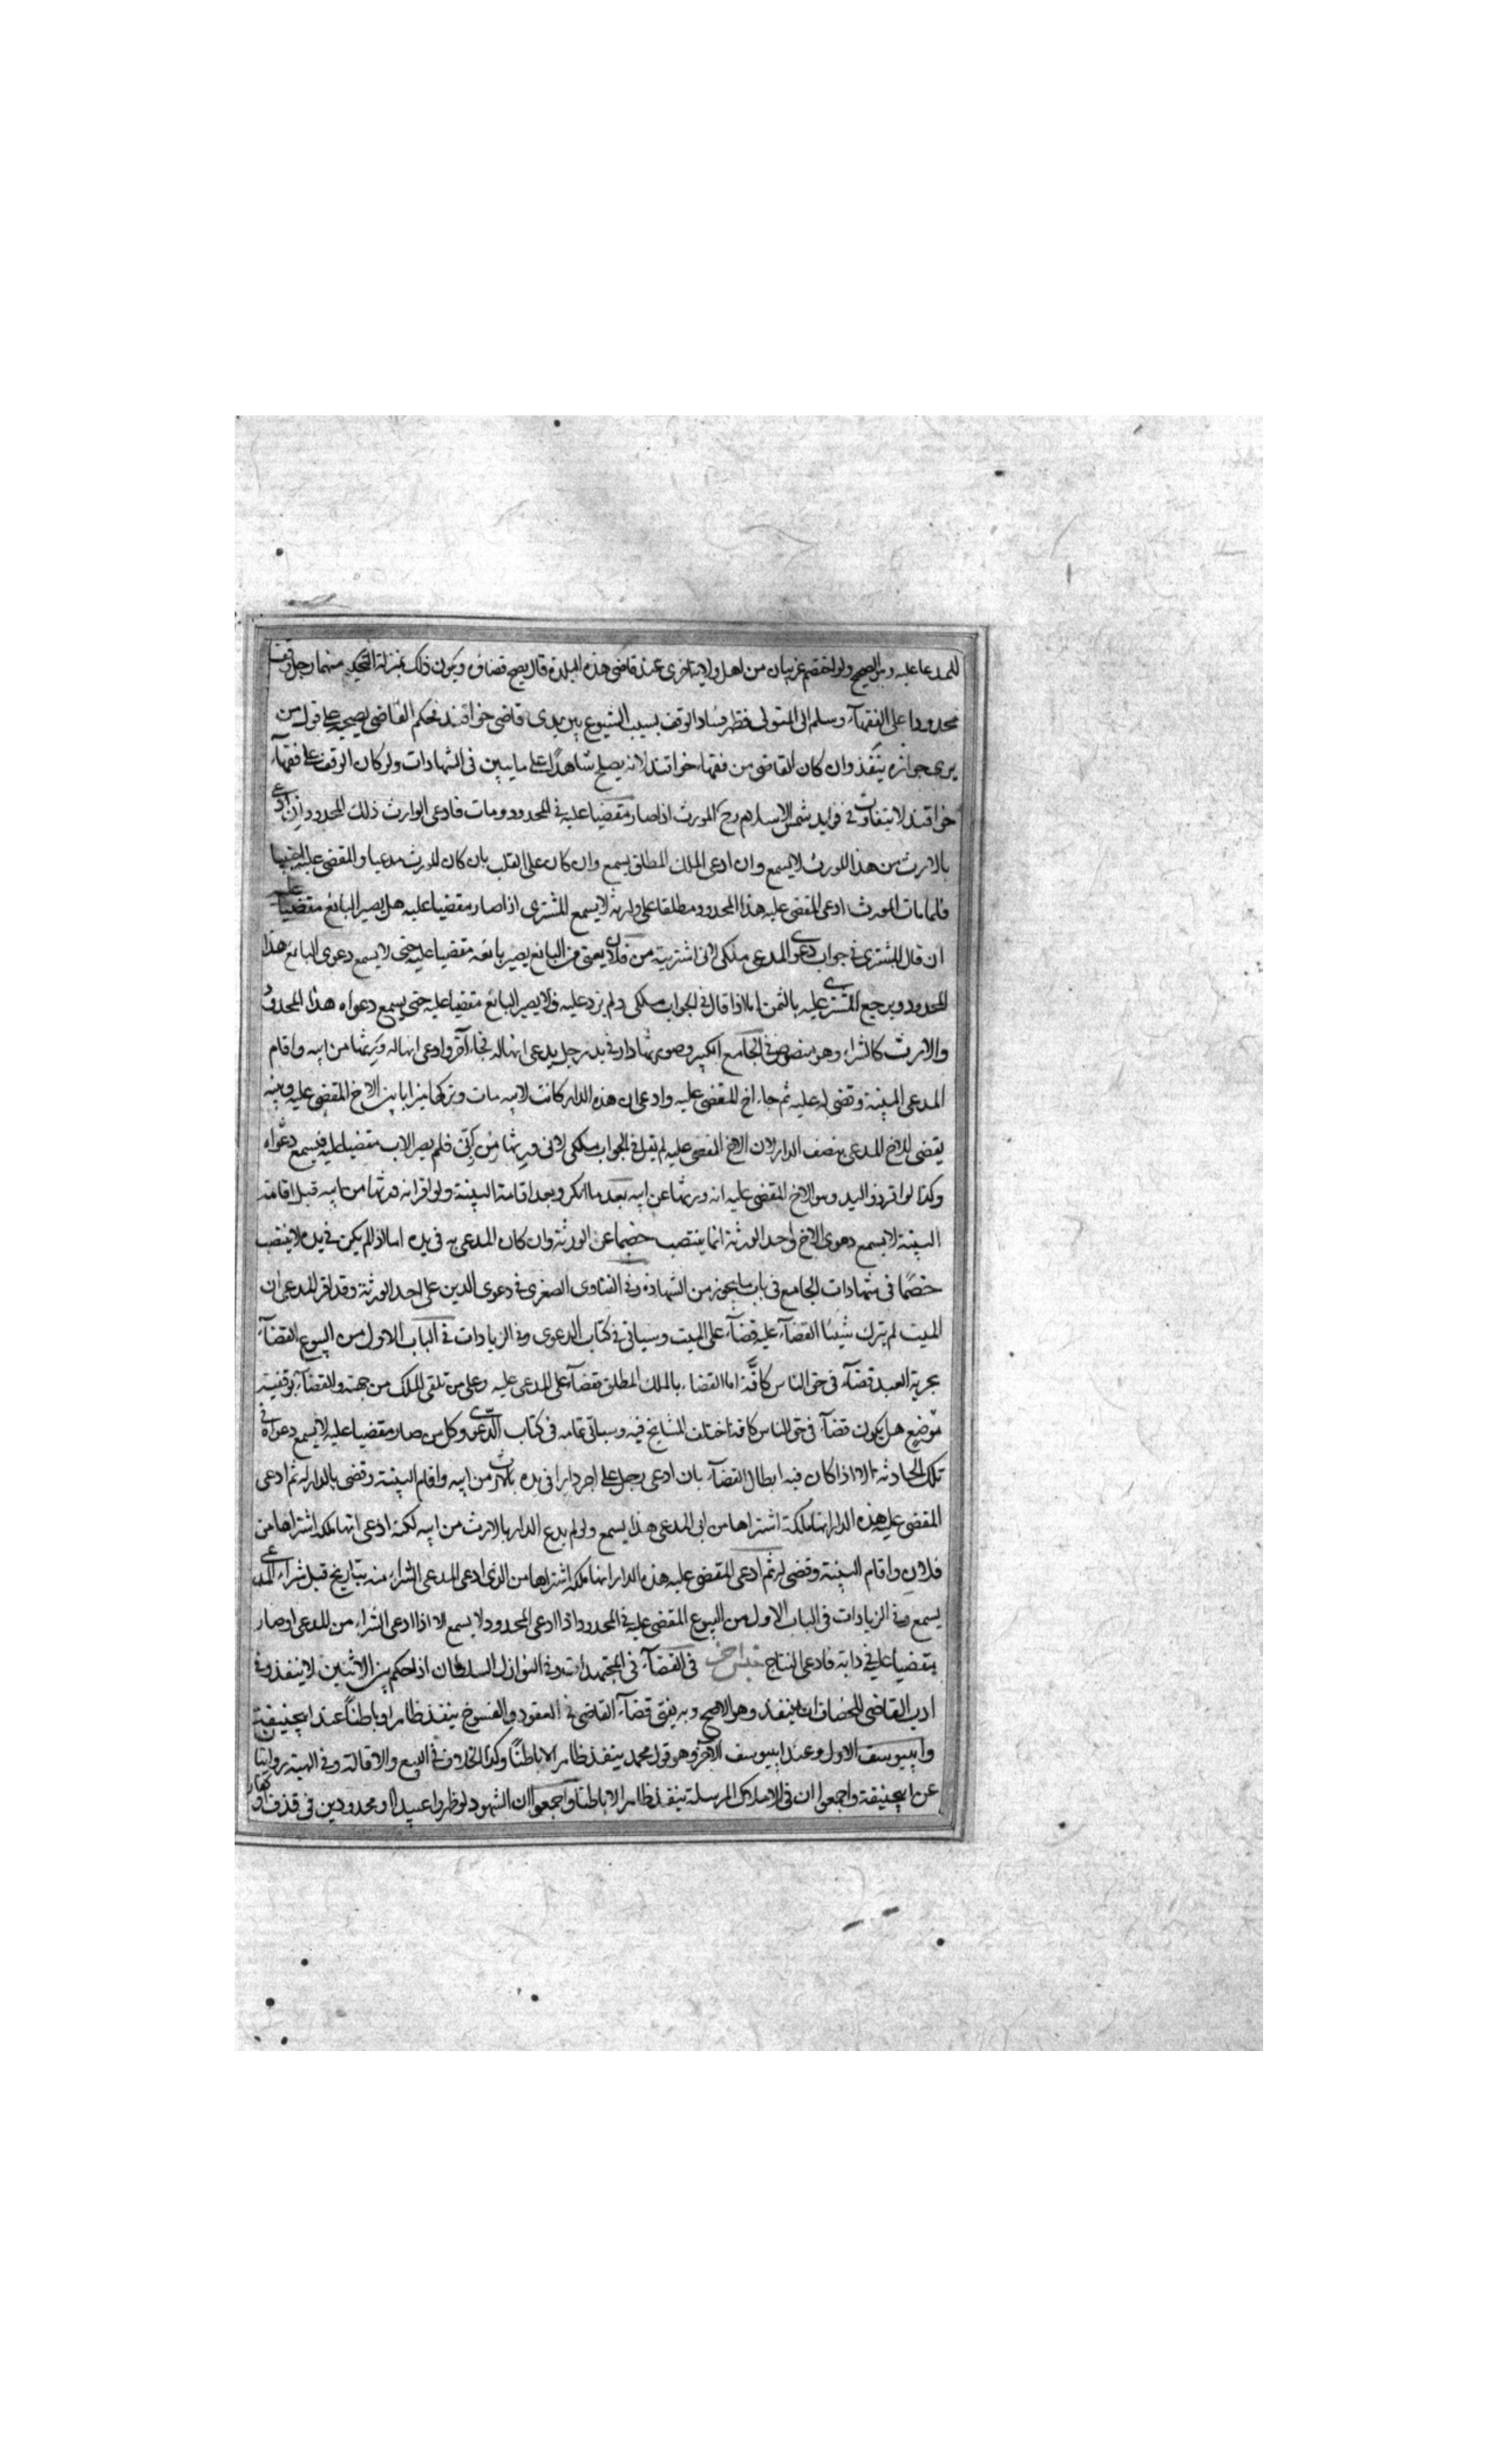 للمدعا عليه وهو الصحيح ولو اختصم غريبان من اهل ولاية اخرى عند قاضى هذه البلدة قال يصح قضاؤه ويكون ذلك بمنزلة التحكيم منهما رجل وقف
محدودا على الفقهاء وسلم الى المتولى فظهر فساد الوقف بسبب الشيوع بين يدى قاضى خواقند فحكم القاضى بصحته على قول من
يرى جوازه ينفذ وان كان القاضى من فقهاء خواقند لانه يصلح شاهدًا على ما يبين فى الشهادات ولو كان الوقف على فقهاء
خواقند لا يتفاوت فى فوايد شمس الاسلام رح المورث اذا صار مقضيا عليه فى المحدود ومات فادعى الوارث ذلك المحدود ان ادعى
بالارث من هذا المورث لا يسمع وان ادعى الملك المطلق يسمع وان كان على القلب بان كان المورث مدعيا والمقضى عليه اجنبيا
فلما مات المورث ادعى المقضى عليه هذا المحدود مطلقا على وارثه لا يسمع المشترى اذا صار مقضيا عليه هل يصير البائع مقضيا عليه
ان قال المشترى فى جواب دعوى المدعى ملكى لانى اشتريته من فلان يعنى من البائع يصير بائعه مقضيا عليه حتى لا يسمع دعوى البائع هذا
المحدود ويرجع المشترى عليه بالثمن اما اذا قال فى الجواب ملكى ولم يزد عليه فلا يصير البائع مقضيا عليه حتى يسمع دعواه هذا المحدود
والارث كالشراء وهو منصوص فى الجامع الكبير وصورتها دار فى يد رجل يدعى انها له فجاء آخر وادعى انها له ورثها من ابيه واقام
المدعى البينة وقضى له عليه ثم جاء اخ المقضى عليه وادعى ان هذه الدار كانت لابيه مات وتركها ميراثا بين الاخ المقضى عليه وبينه
يقضى للاخ المدعى بنصف الدار لان الاخ المقضى عليه لم يقل فى الجواب ملكى لانى ورثتها من ابى فلم يصر الاب مقضيا عليه فيسمع دعواه
وكذا لو اقر ذو اليد وهو الاخ المقضى عليه انه ورثها عن ابيه بعد ما انكر وبعد اقامة البينة ولو اقر انه ورثها من ابيه قبل اقامة
البينة لا يسمع دعوى الاخ واحد الورثة انما ينتصب خصما عن الورثة وان كان المدعى به فى يده اما اذا لم يكن فى يده لا ينتصب
خصمًا فى شهادات الجامع فى باب ما يجوز من الشهادة وفى الفتاوى الصغرى فى دعوى الدين على احد الورثة وقد اقر المدعى ان
الميت لم يترك شيئا القضاء عليه قضآء على الميت وسياتى فى كتاب الدعوى وفى الزيادات فى الباب الاول من البيوع القضآء
بحرية العبد قضآء فى حق الناس كافة اما القضاء بالملك المطلق فقضآء على المدعى عليه وعلى من تلقى الملك من جهته والقضآء بوقفية
موضع هل يكون قضآء فى حق الناس كافة اختلف المشايخ فيه وسياتى تمامه فى كتاب الدعوى وكل من صار مقضيا عليه لا يسمع دعواه فى
تلك الحادثة الا اذا كان فيه ابطال القضآء بان ادعى رجل على اخر دارا فى يده بالارث من ابيه واقام البينة وقضى بالدار له ثم ادعى
المقضى عليه هذه الدار انها ملكه اشتراها من ابى المدعى هذا يسمع ولو لم يدع الدار بالارث من ابيه لكنه ادعى انها ملكه اشتراها من
فلان واقام البينة وقضى له ثم ادعى المقضى عليه هذه الدار انها ملكه اشتراها من الذى ادعى المدعى الشراء منه بتاريخ قبل شراء المدعى
يسمع وفى الزيادات فى الباب الاول من البيوع المقضى عليه فى المحدود اذا ادعى المحدود لا يسمع الا اذا ادعى الشراء من المدعى او صار
مقضيا عليه فى دابة فادعى النتاج فى القضآء فى المجتهدات وفى النوازل السلطان اذا حكم بين الاثنين لا ينفذ وفى
ادب القاضى للخصاف انه ينفذ وهو الاصح وبه يفتى قضآء القاضى فى العقود والفسوخ ينفذ ظاهرا وباطناً عند ابيحنيفة
وابيوسف الاول وعند ابيوسف الآخر وهو قول محمد ينفذ ظاهرا لا باطناً وكذا الخلاف فى البيع والاقالة وفى الهبة روايتان
عن ابيحنيفة واجمعوا ان فى الاملاك المرسلة ينفذ ظاهرا لا باطنا واجمعوا ان الشهود لو ظهروا عبيدا او محدودين فى قذف او كفار